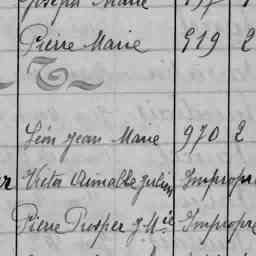 Joseph Marie
Pierre Marie 919 2
T
Léon Jean Marie 970 2
Victor Aimable Julien Impropre
Pierre Prosper J. Mie Impropre